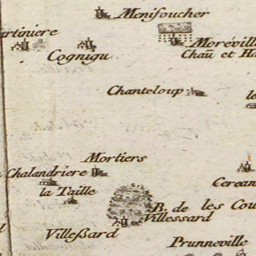 Menisoucher
rtiniere
Moréville
Cognigu
Chaū et Ha
Chanteloup
le
Mortiers
Chalandriere
Cerean
la Taille
R. de les Cou
Villessard
Villeßard
Prunneville